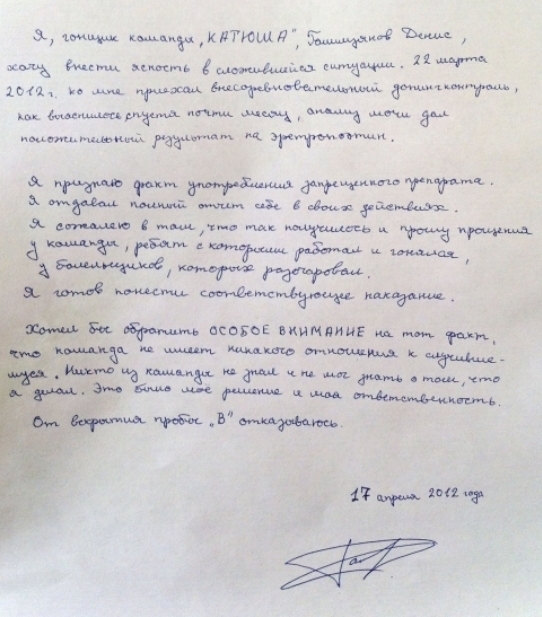 Я, гонщик команды „КАТЮША", Галимзянов Денис,
хочу внести ясность в сложившейся ситуации. 22 марта
2012 г. ко мне приехал внесоревновательный допингконтроль,
как выяснилось спустя почти месяц, анализ мочи дал
положительный результат на эретропоэтин.
Я признаю факт употребления запрещенного препарата.
Я отдавал полный отчет себе в своих действиях.
Я сожалею в том, что так получилось и прошу прощения
у команды, ребят с которыми работал и гонялся,
у болельщиков, которых разочаровал.
Я готов понести соответствующее наказание.
Хотел бы обратить ОСОБОЕ ВНИМАНИЕ на тот факт,
что команда не имеет никакого отношения к случивше-
муся. Никто из команды не знал и не мог знать о том, что
я делал. Это было мое решение и моя ответственность.
От вскрытия пробы „В" отказываюсь.
17 апреля 2012 года